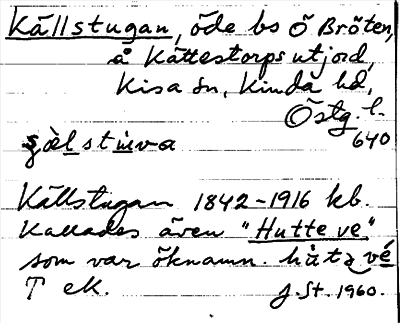 Källstugan, öde bs Ö Bröten,
å Kättestorps utjord,
Kisa sn, Kinda hd,
Östg. l.
640
Källstugan 1842-1916 kb.
Kallades även "Hutte ve"
som var öknamn. hùta vé
T ek. J. St. 1960.